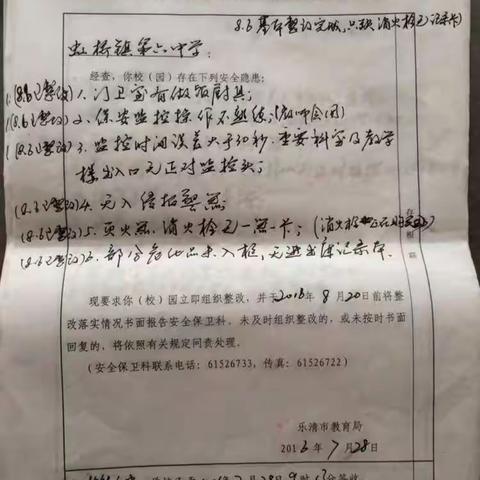 8.6基本整改完成,只缺消火栓记录卡)
虹桥镇第六中学:
经查,你校(园)存在下列安全隐患:
(8.6已整改)1、门卫室有做饭厨具;
(8.6已整改)2、保安监控操作不熟练;
(8.6已整改)3、监控时间误差大于30秒,重要科室及教学
楼出入口无正对监控头;
(8.6已整改)4、无入侵报警器;
(8.6已整改)5、灭火器、消火栓无一器一卡;(消火栓
(8.6已整改)6、部分危化品未入柜,无进出库记录本.
存根联
现要求你(校)园立即组织整改,并于2016年8月20日前将整
改落实情况书面报告安全保卫科。未及时组织整改的,或未按时书面
回复的,将依照有关规定问责处理。
(安全保卫科联系电话:61526733,传真:61526722)
乐清市教育局
2016年7月28日